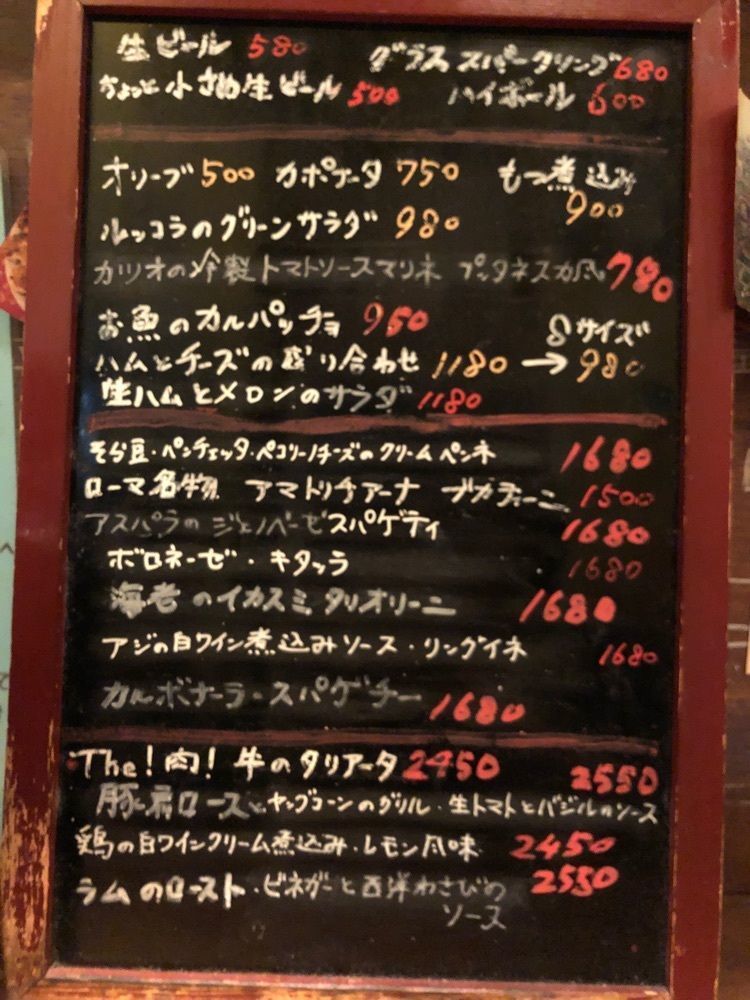 生ビール 580 グラス スパークリング 680
ちょっと小さめ生ビール 500 ハイボール 600
オリーブ 500 カポナータ 750 もつ煮込み 900
ルッコラのグリーンサラダ 980
カツオの冷製トマトソースマリネ プッタネスカ風 780
お魚のカルパッチョ 950
ハムとチーズの盛り合わせ 1180 → Sサイズ 980
生ハムとメロンのサラダ 1180
そら豆・パンチェッタ・ペコリーノチーズのクリームペンネ 1680
ローマ名物 アマトリチアーナ ブカティーニ 1500
アスパラの ジェノベーゼスパゲティ 1680
ボロネーゼ・キタッラ 1680
海老のイカスミ タリオリーニ 1680
アジの白ワイン煮込みソース・リングイネ 1680
カルボナーラ・スパゲチー 1680
The!肉!牛のタリアータ 2450
豚肩ロースとヤングコーンのグリル・生トマトとバジルのソース 2550
鶏の白ワインクリーム煮込み・レモン風味 2450
ラムのロースト・ビネガーと西洋わさびの 2550
ソース